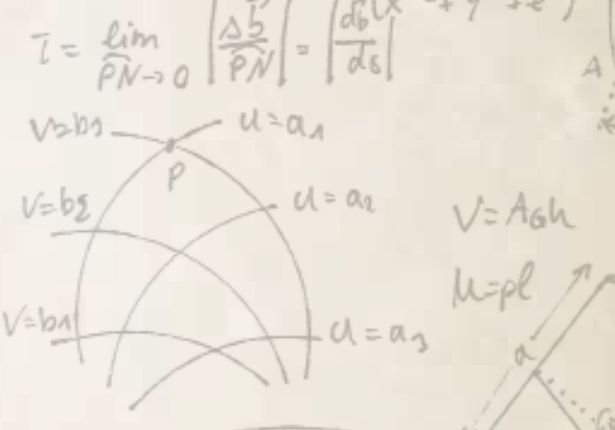 τ = lim |Δb⃗ / P͡N| = |db⃗ / ds|
P͡N→0
V=b3
u=a1
P
V=b2
u=a2
V=b1
u=a3
V=AGh
M=pl
A
a